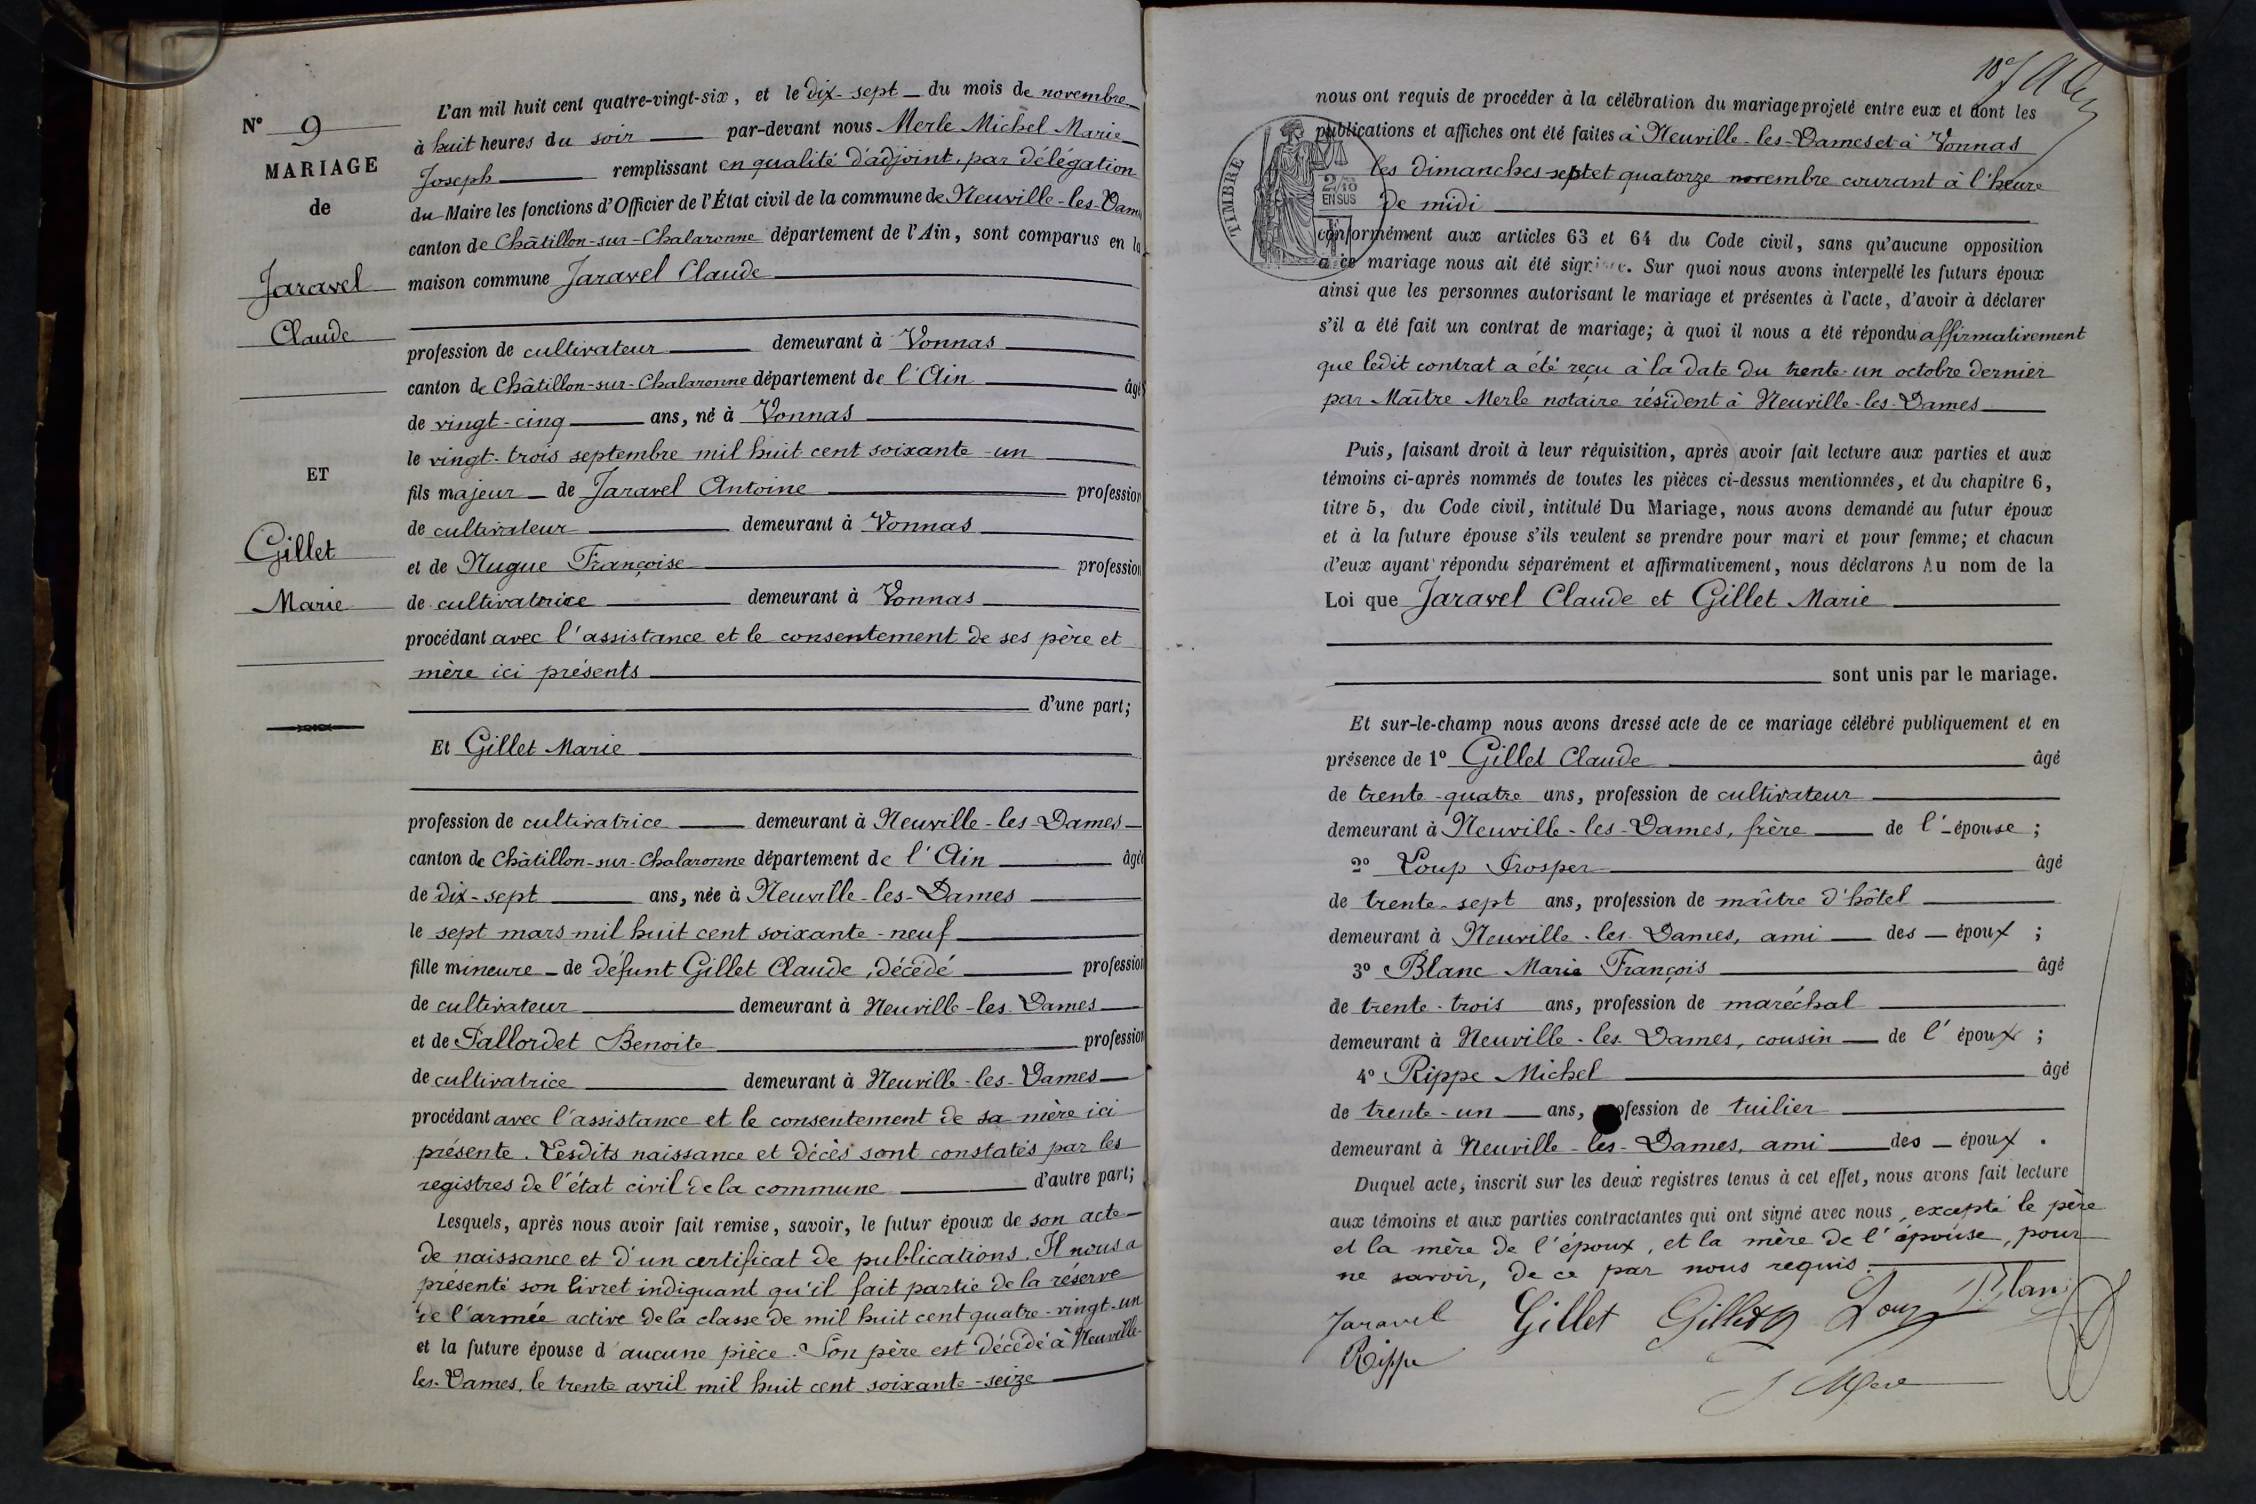 N° 9
MARIAGE
de
Jaravel
Claude
ET
Gillet
Marie
L'an mil huit cent quatre-vingt-six, et le dix-sept du mois de novembre
à huit heures du soir par-devant nous Merle Michel Marie
Joseph remplissant en qualité d'adjoint, par délégation
du Maire les fonctions d'Officier de l'État civil de la commune de Neuville-les-Dam
canton de Châtillon-sur-Chalaronne département de l'Ain, sont comparus en la
maison commune Jaravel Claude
profession de cultivateur demeurant à Vonnas
canton de Châtillon-sur-Chalaronne département de l'Ain âgé
de vingt-cinq ans, né à Vonnas
le vingt-trois septembre mil huit cent soixante-un
fils majeur de Jaravel Antoine profession
de cultivateur demeurant à Vonnas
et de Nugue Françoise profession
de cultivatrice demeurant à Vonnas
procédant avec l'assistance et le consentement de ses père et
mère ici présents
d'une part;
Et Gillet Marie
profession de cultivatrice demeurant à Neuville-les-Dames
canton de Châtillon-sur-Chalaronne département de l'Ain âgée
de dix-sept ans, née à Neuville-les-Dames
le sept mars mil huit cent soixante-neuf
fille mineure de défunt Gillet Claude, décédé profession
de cultivateur demeurant à Neuville-les-Dames
et de Pallordet Benoite profession
de cultivatrice demeurant à Neuville-les-Dames
procédant avec l'assistance et le consentement de sa mère ici
présente. Lesdits naissance et décès sont constatés par les
registres de l'état civil de la commune d'autre part;
Lesquels, après nous avoir fait remise, savoir, le futur époux de son acte
de naissance et d'un certificat de publications. Il nous a
présenté son livret indiquant qu'il fait partie de la réserve
de l'armée active de la classe de mil huit cent quatre-vingt-un
et la future épouse d'aucune pièce. Son père est décédé à Neuville-
les-Dames, le trente avril mil huit cent soixante-seize
nous ont requis de procéder à la célébration du mariage projeté entre eux et dont les
publications et affiches ont été faites à Neuville-les-Dames et à Vonnas
les dimanches sept et quatorze novembre courant à l'heure
de midi
TIMBRE
2/10
EN SUS
conformément aux articles 63 et 64 du Code civil, sans qu'aucune opposition
à ce mariage nous ait été signifiée. Sur quoi nous avons interpellé les futurs époux
ainsi que les personnes autorisant le mariage et présentes à l'acte, d'avoir à déclarer
s'il a été fait un contrat de mariage; à quoi il nous a été répondu affirmativement
que ledit contrat a été reçu à la date du trente-un octobre dernier
par Maître Merle notaire résident à Neuville-les-Dames
Puis, faisant droit à leur réquisition, après avoir fait lecture aux parties et aux
témoins ci-après nommés de toutes les pièces ci-dessus mentionnées, et du chapitre 6,
titre 5, du Code civil, intitulé Du Mariage, nous avons demandé au futur époux
et à la future épouse s'ils veulent se prendre pour mari et pour femme; et chacun
d'eux ayant répondu séparément et affirmativement, nous déclarons Au nom de la
Loi que Jaravel Claude et Gillet Marie
sont unis par le mariage.
Et sur-le-champ nous avons dressé acte de ce mariage célébré publiquement et en
présence de 1° Gillet Claude âgé
de trente-quatre ans, profession de cultivateur
demeurant à Neuville-les-Dames, frère de l'épouse;
2° Loup Prosper âgé
de trente-sept ans, profession de maître d'hôtel
demeurant à Neuville-les-Dames, ami des époux;
3° Blanc Marie François âgé
de trente-trois ans, profession de maréchal
demeurant à Neuville-les-Dames, cousin de l'époux;
4° Rippe Michel âgé
de trente-un ans, profession de tuilier
demeurant à Neuville-les-Dames, ami des époux.
Duquel acte, inscrit sur les deux registres tenus à cet effet, nous avons fait lecture
aux témoins et aux parties contractantes qui ont signé avec nous, excepté le père
et la mère de l'époux, et la mère de l'épouse, pour
ne savoir, de ce par nous requis.
Jaravel Gillet Gillet Loup Blanc
Rippe
J Merle